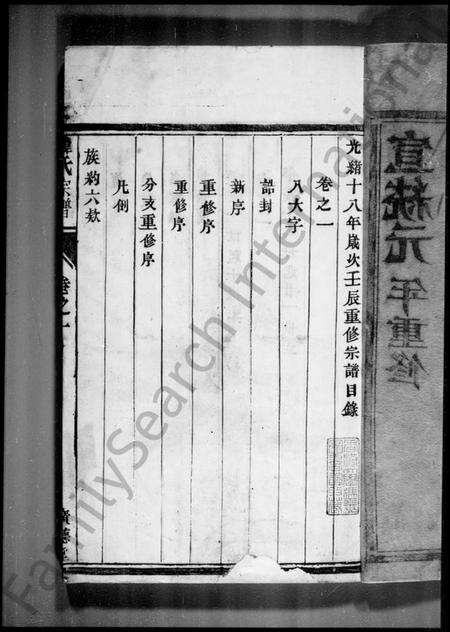 宣統元年重修
光緒十八年歲次壬辰重修宗譜目錄
卷之一
八大字
誥封
新序
重修序
重修序
分支重修序
凡例
族約六款
氏宗譜
卷之一
FamilySearch International